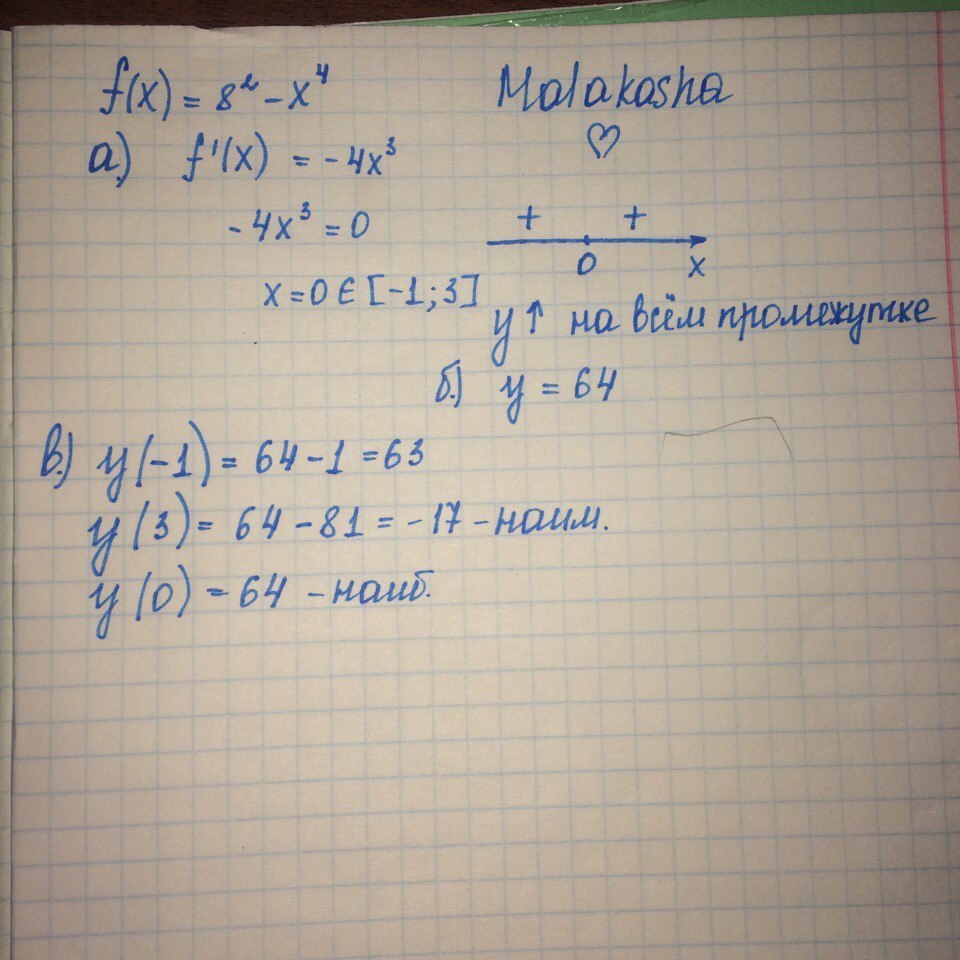 f(x) = 8² - x⁴
Malakasha ♡
а.) f'(x) = - 4x³
- 4x³ = 0
+ +
0 x
x = 0 ∈ [-1; 3]
y↑ на всём промежутке
б.) y = 64
в.) y(-1) = 64 - 1 = 63
y(3) = 64 - 81 = - 17 - наим.
y(0) = 64 - наиб.